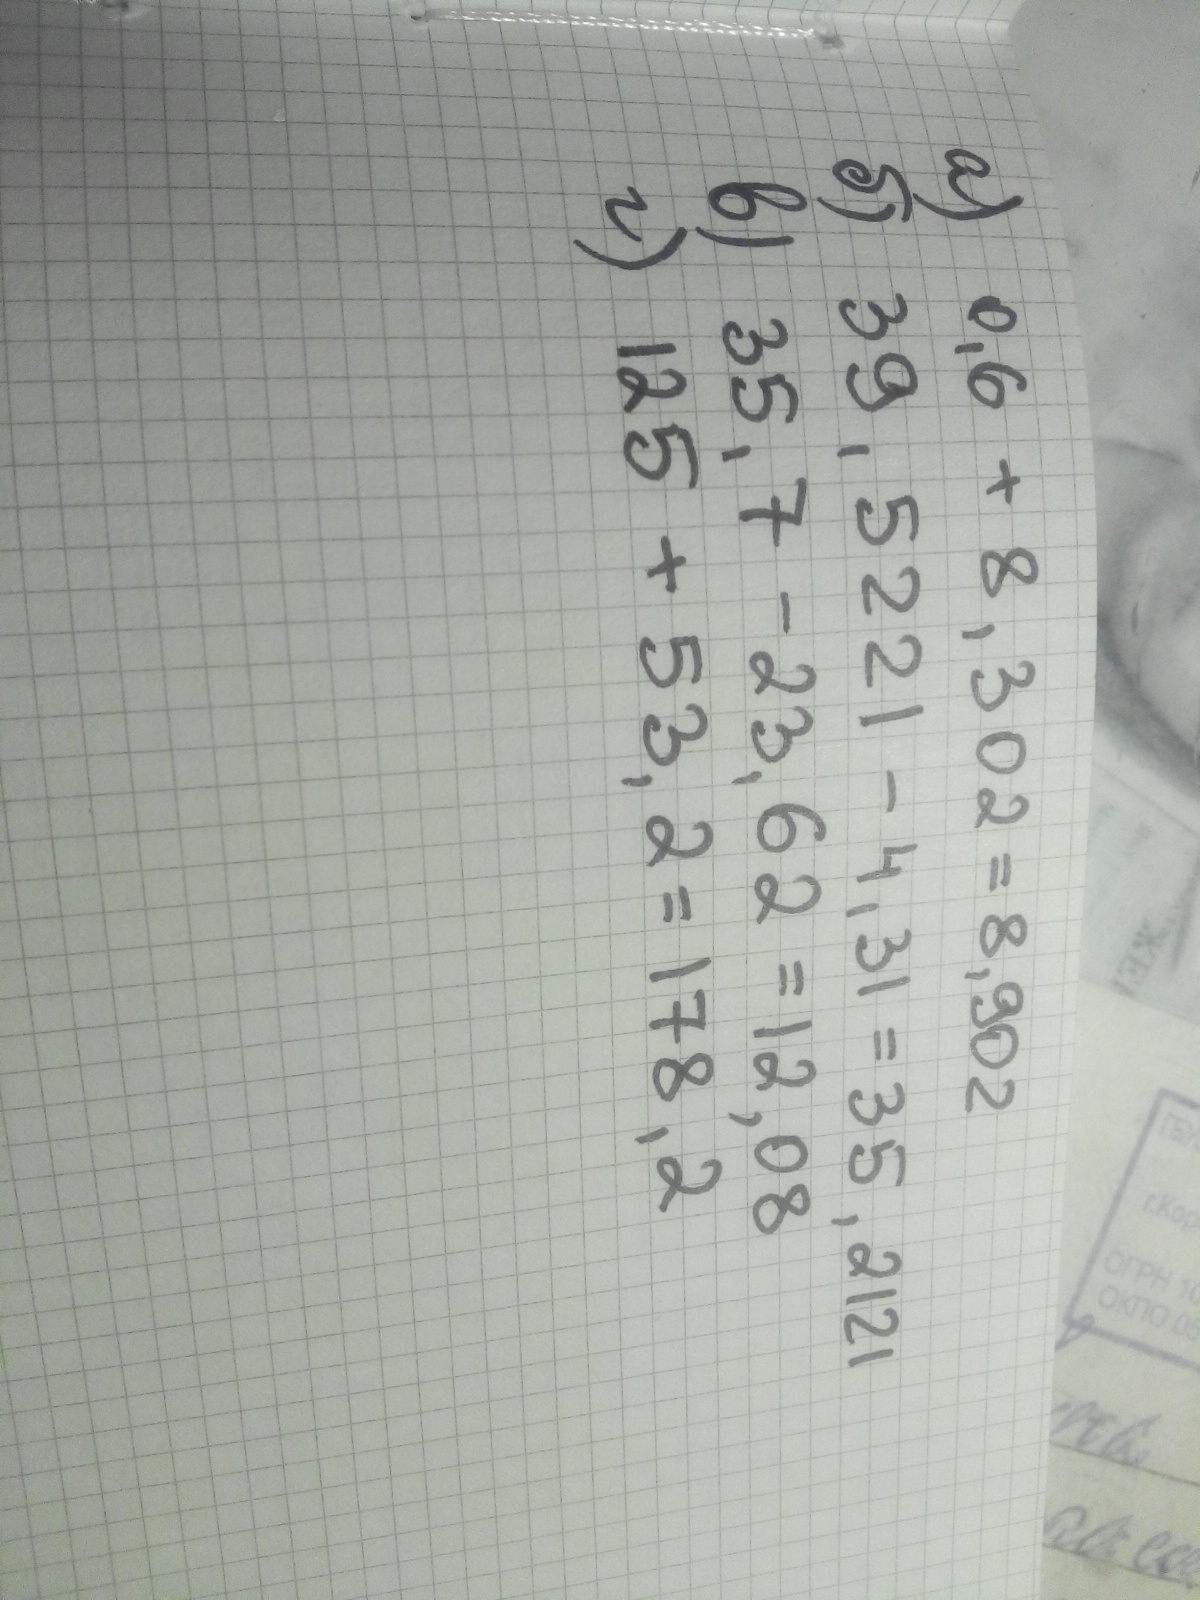 а) 0,6 + 8,302 = 8,902
б) 39,5221 - 4,31 = 35,2121
в) 35,7 - 23,62 = 12,08
г) 125 + 53,2 = 178,2
г.Кор
ОГРН 10
ОКПО 05